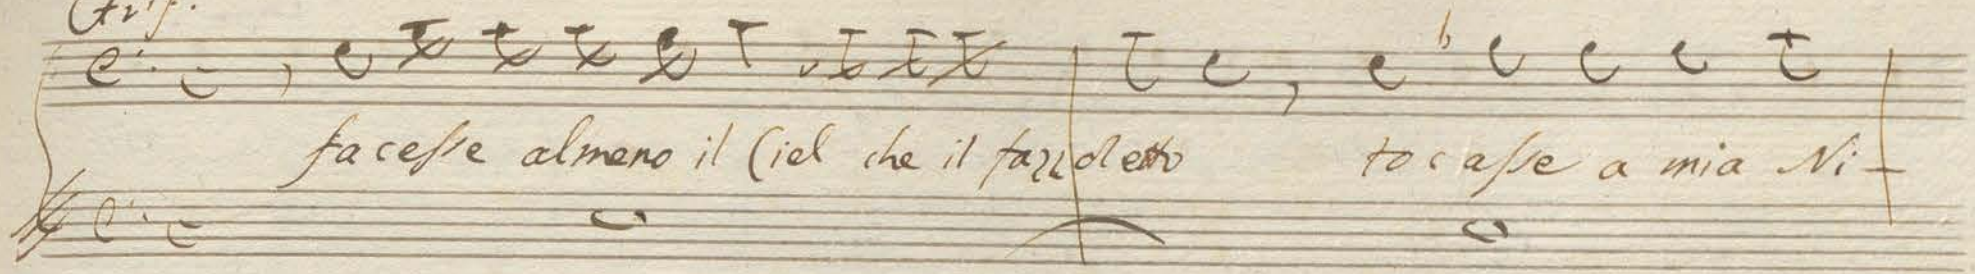 facesse almeno il Ciel che il fazzoletto tocasse a mia Ni-